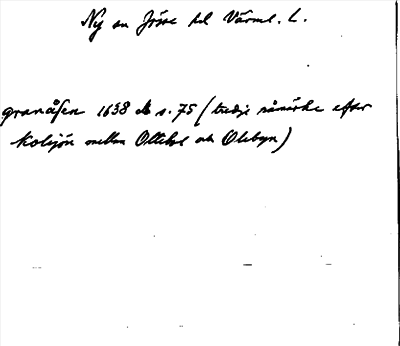 Ny sn Jösse hd Värml. L.
granåsen 1638 db s. 75 (tredje råmärke efter
Kolsjön mellan och Olebyn)